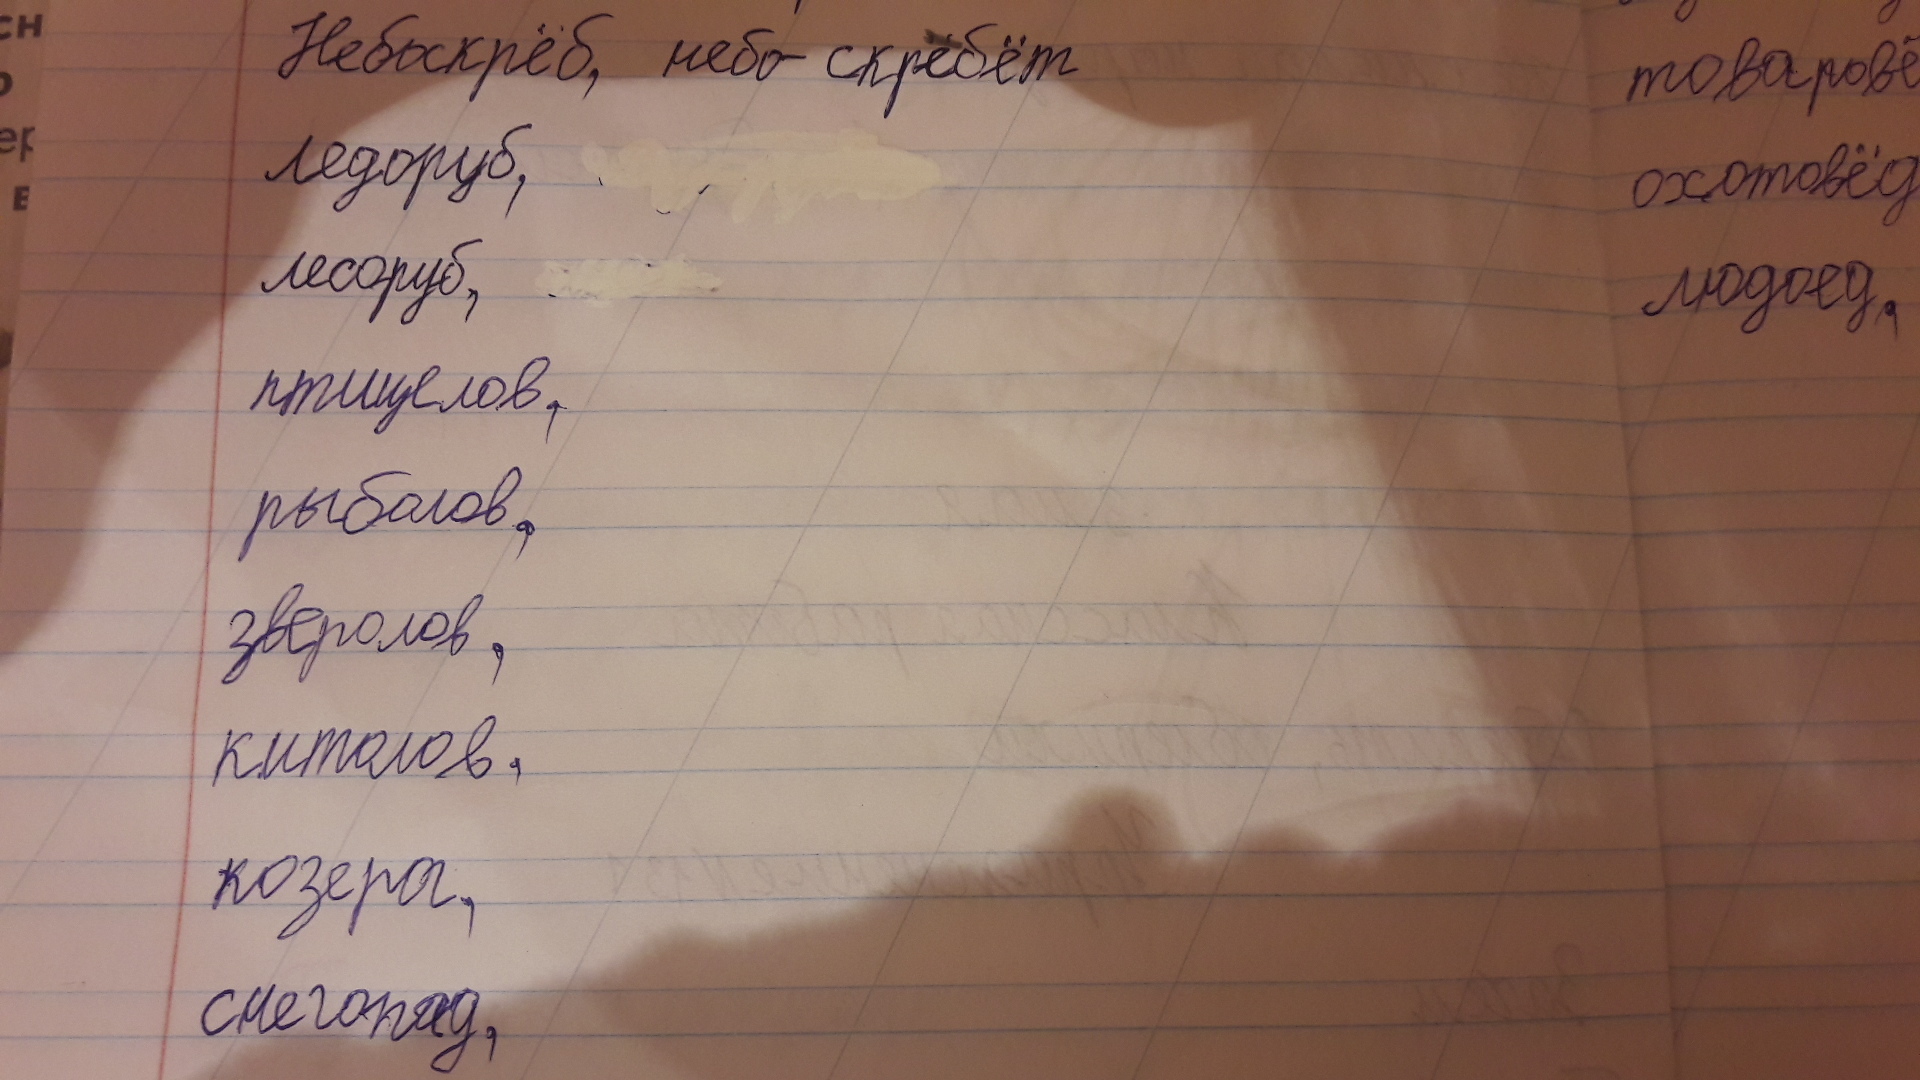 Небоскрёб, небо скребёт
ледоруб,
лесоруб,
птицелов,
рыболов,
зверолов,
китолов,
козерог,
снегопад,
товаровё
охотовёд
людоед,